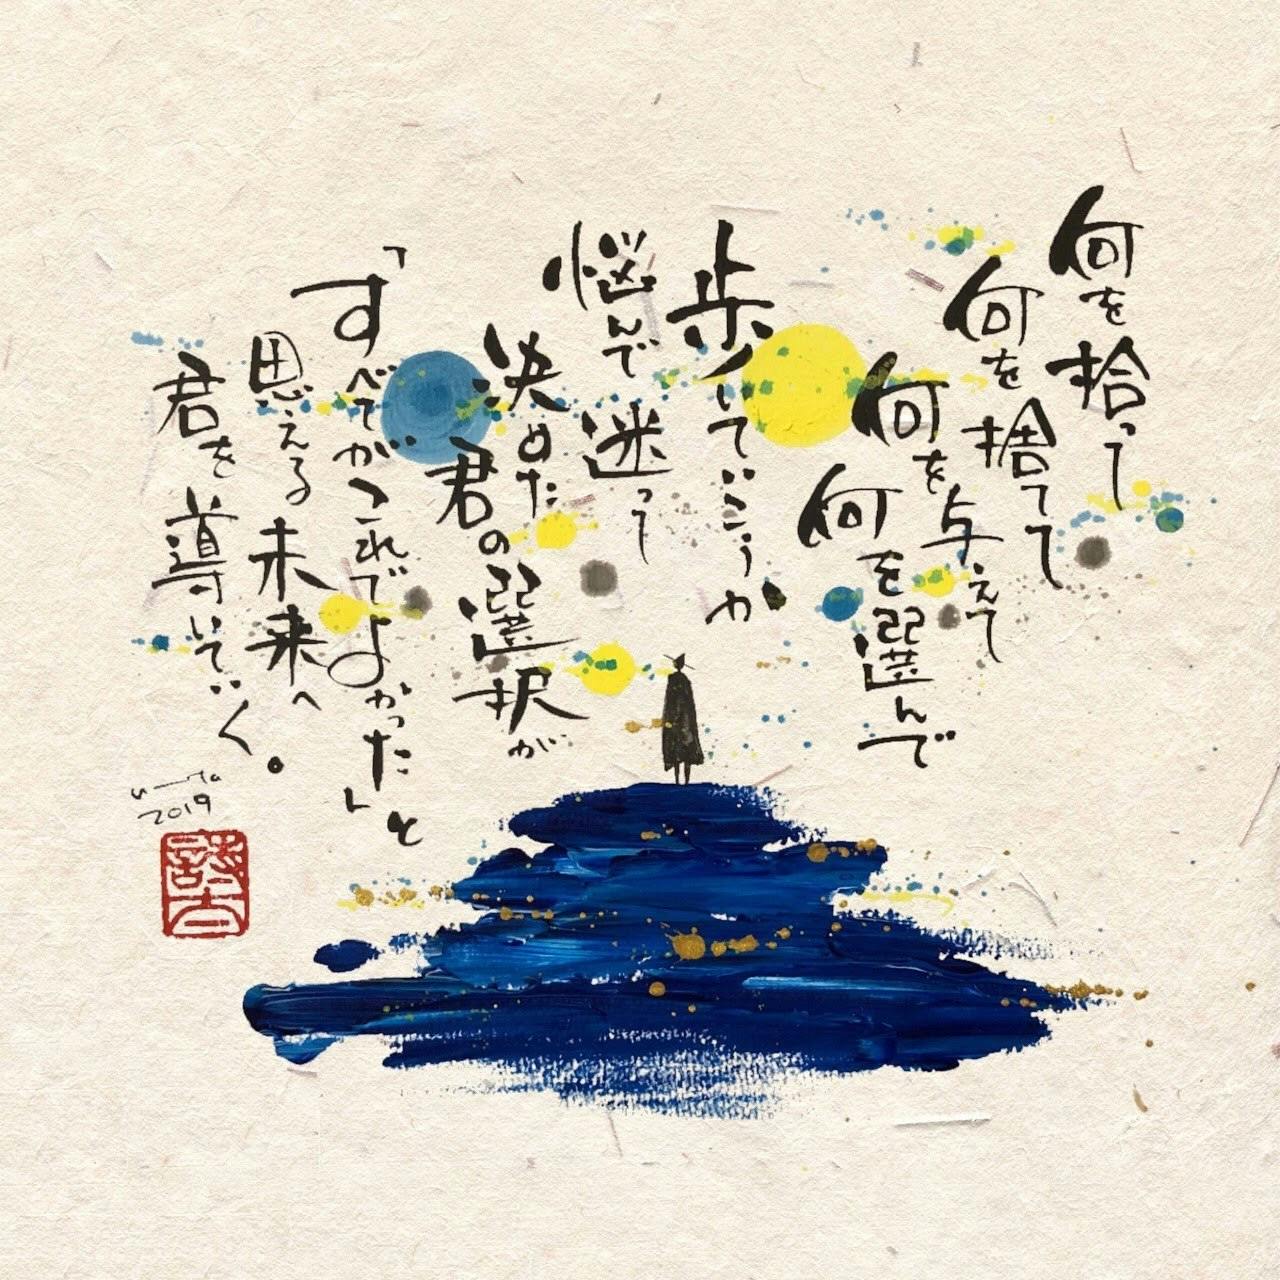 何を拾って
何を捨てて
何を与えて
何を選んで
歩いていこうか
悩んで迷って
決めた
君の選択が
「すべてがこれでよかった」と
思える未来へ
君を導いていく。
2019